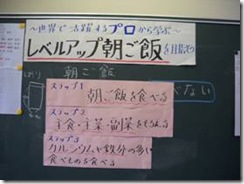 ～世界で活躍するプロから学ぶ～
レベルアップ朝ご飯を目指そう
朝ご飯
ステップ1
朝ご飯を食べる
ない
ステップ2
主食・主菜・副菜をそろえる
ステップ3
カルシウムや鉄分の多い
食べものを食べる